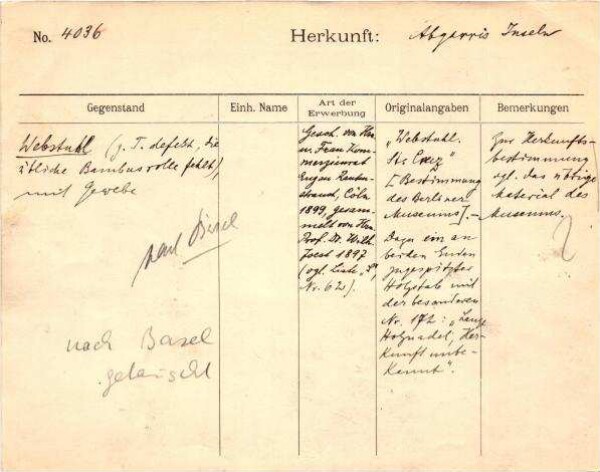 No. 4036
Herkunft: Abgarris Inseln
Gegenstand
Einh. Name
Art der Erwerbung
Originalangaben
Bemerkungen
Webstuhl (z. T. defekt, die
übliche Bambusrolle fehlt)
mit Gewebe
nach Basel
nach Basel
getauscht
Gesch. von Hrn.
u. Frau Kom-
merzienrat
Eugen Rauten-
strauch, Cöln
1899, gesam-
melt von Hrn.
Prof. Dr. Wilh.
Joest 1897
(vgl. Liste „I“,
Nr. 62).
„Webstuhl.
St. Cruz“
[Bestimmung
des Berliner
Museums]. –
Dazu ein an
beiden Enden
zugespitzter
Holzstab mit
der besonderen
Nr. 172: „Lange
Holznadel, Her-
kunft unbe-
kannt“.
Zur Herkunfts-
bestimmung
vgl. das übrige
Material des
Museums.